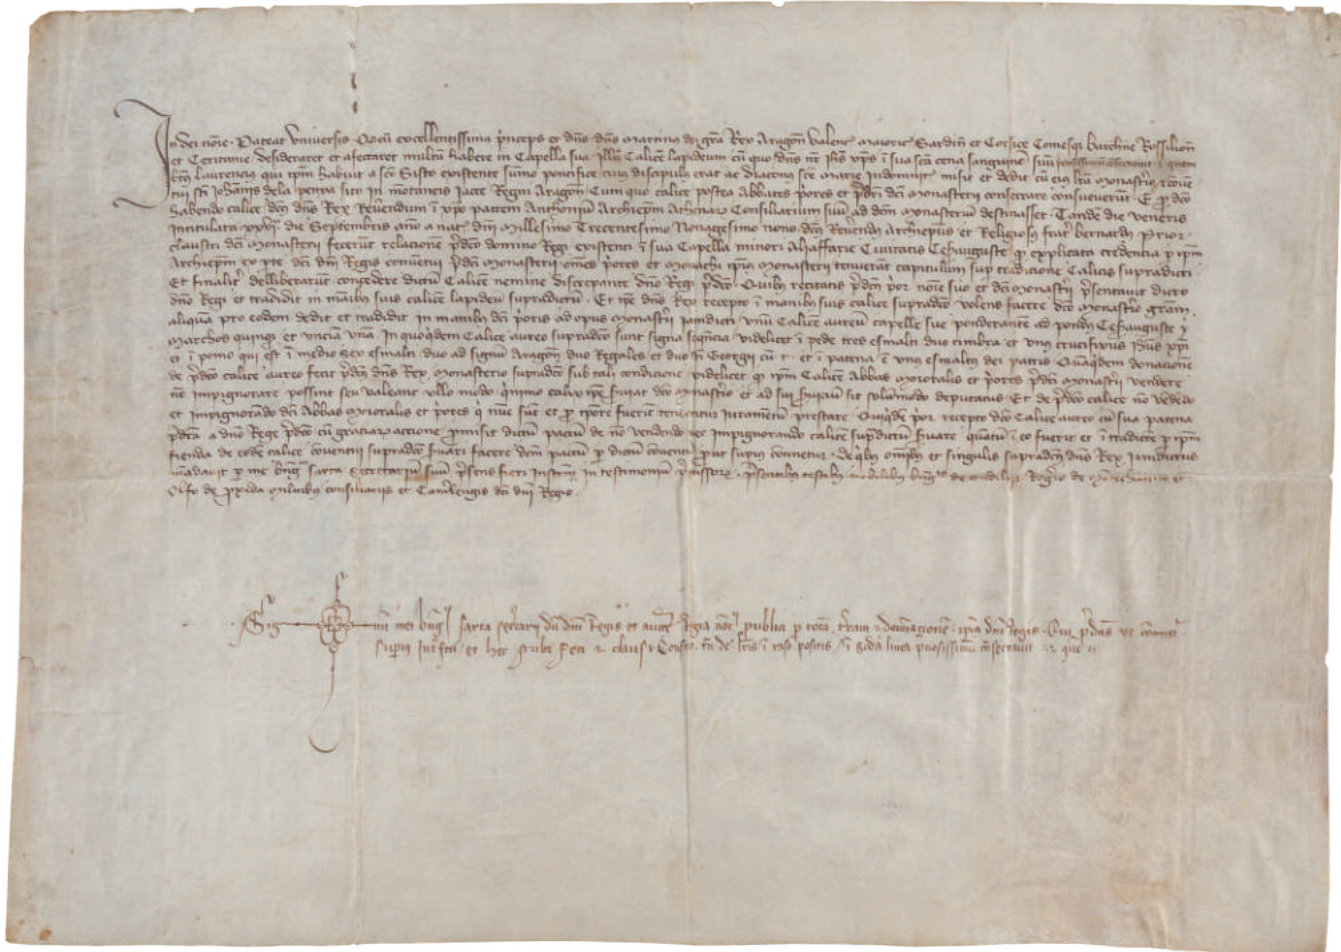 In dei noīe. Pateat Universis. Q̄ cū excellentissimus p̄nceps et dn̄s. dn̄s Martinus dei gr̄a Rex Aragon̄ Valenc̄ Maioric̄ Sardin̄ et Corsice Comesq̧ barchn̄e Rossilion̄
et Ceritanie desideraret et afectaret multū habere in Capella sua Illū Calicē lapideum cū quo dn̄s nr̄ Ih̄s xp̄s ī sua scā cena sanguinē suū quem
bt̄us laurencius qui ip̄m habuit a scō Sixto existente sumo pontifice cuiꝰ discipulꝰ erat ac diaconꝰ sc̄e marie Indominic̄ misit et dedit cū eiꝰ lr̄a monast̄io et cōvē
tui sc̄i Joh̄annis dela penya sito in mōtaneis Jacce Regni Aragon̄. Cum quo calice postea Abbates p̄ores et p̄sb̄ri dc̄i monasterii consecrare consueverūt. E p̄ dc̄o
habendo calice. dc̄us dn̄s Rex Reverendum ī xp̄o patrem Anthoniū Archiep̄m Athenaꝝ Consiliarium suū ad dc̄m monasteriū destinasset. Tandē die veneris
intitulata xxvi. die Septembris año a nat̄ dn̄i Millesimo Trecentesimo Nonagesimo nono. dc̄us Reverendꝰ Archiep̄us et Religiosꝰ frat̄ bernardꝰ Prior.
claustri dc̄i monasterii fecerūt relacione p̄dc̄o domino Regi existenti ī sua Capella minori Aljaffarie Civitatis Ces̄auguste q̄ explicata credencia p ip̄m
Archiep̄m ex pte dc̄i dn̄i Regis conventui p̄dc̄i monasterii. om̄es p̄ores et monachi ip̄ius monasterii tenuerūt capitulum sup tradicione Calicis supradicti
Et finalit̄ delliberarūt concedere dictū Calicē nemine discrepante dn̄o Regi p̄dc̄o. Quibꝰ recitatis p̄dc̄us p̄or noīe suo et dc̄i monast̄ii p̄sentavit dicto
dn̄o Regi et tradidit in māibꝰ suis calicē lapideū supradictū. Et ip̄e dn̄s Rex recepto ī manibꝰ suis calice supradc̄o volens facere dc̄o monast̄io gr̄am
aliquā pro eodem dedit et tradidit in manibꝰ dc̄i p̄oris ad opus monast̄ii jamdicti. unū Calicē aureū capelle sue ponderantē ad pondꝰ Ces̄auguste v
marchos quinq̧ et unciā unā. In quoq̄dem Calice aureo supradc̄o sunt signa seq̄ncia videlicet ī pede tres esmalti duo timbra. et unꝰ crucifixus Ih̄us xp̄i
et ī pomo qui est ī medio sex esmalti duo ad signū Aragon̄ duo Regales et duo sc̄i Georgii cū t. et ī patena ē unꝰ esmaltꝰ dei patris. Quāq̄dem donacionē
de p̄dc̄o calice aureo fecit p̄dc̄us dn̄s Rex. monasterio supradc̄o sub tali condicione videlicet q̄ ip̄m Calicē Abbas maioralis et p̄ores p̄dc̄i monast̄ii vendere
nc̄ Impignorare possint seu valeant ullo modo q̄nimo calix ip̄e s̄viat dc̄o monast̄io et ad suū s̄viciū sit solūmodo deputatus. Et de p̄dc̄o calice nō vēdēdo
et impignorādo dc̄i Abbas maioralis et p̄ores q̄ nūc sūt et p̄ tp̄ore fuerīt teneātur Juramētū prestare. Quiq̄de p̄or recepto dc̄o Calice aureo cū sua patena
p̄dc̄ta a dno Rege p̄dc̄o cū graciaꝝ accione p̄misit dictū pactū de nō vendendo nec Impignorando calicē sup̄dictū s̄vare quātū ī eo fuerit et ī tradicōe p ip̄m
fienda de eodē calice cōventui supradc̄o s̄vari facere dc̄m pactū p dictū conventū put supiꝰ continetur. de q̄ibꝰ om̄ibꝰ et singulis supradc̄us dn̄s Rex Jamdictus
mādavit p me bn̄gꝰ sarta Secretariū suū p̄sens fieri Instr̄m in testimoniū p̄missoꝝ. p̄sentibꝰ testibꝰ nobilibꝰ Rog̃io de
Oifo de pxida militibꝰ consiliariis et Cam̄lengis dc̄i dn̄i Regis.
Sig num mei bn̄gꝰ sarta sec̄tarii dc̄i dn̄i Regis et auct̄ Regia not̄ publici p totā t̄ram et dominacionē ip̄ius dn̄i Regis. Qui p̄dc̄is
Supiꝰ Int̄fui et hec scribi feci et clausi Constat